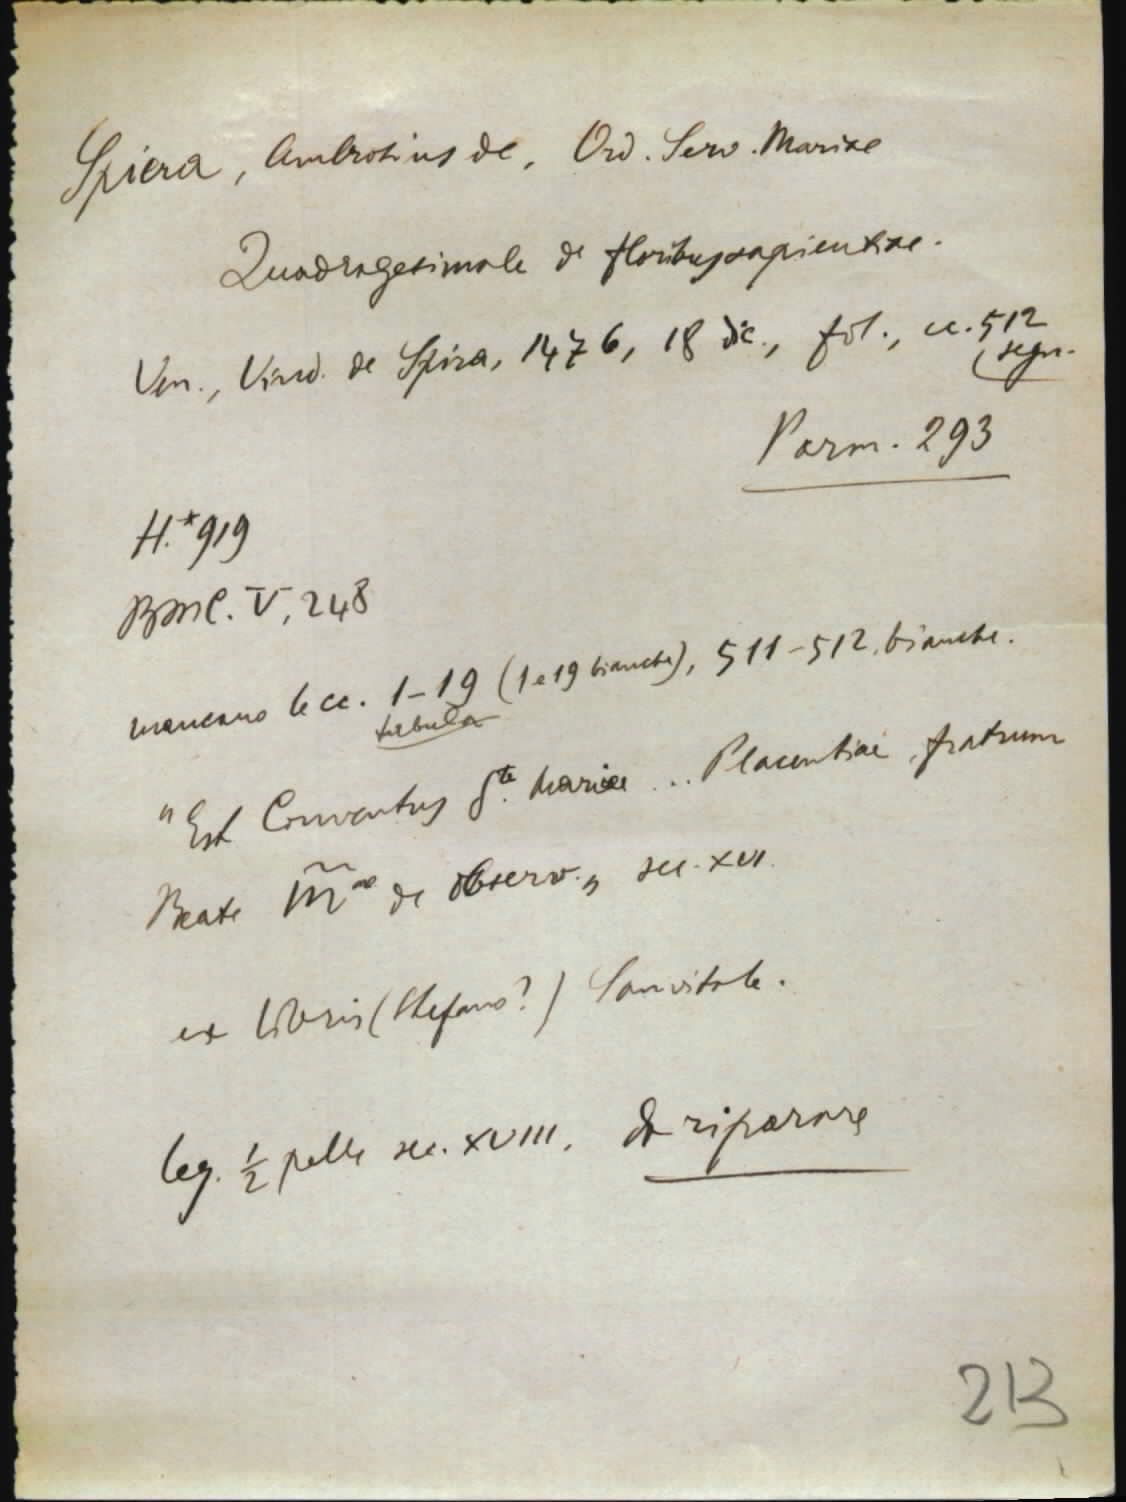 Spiera, Ambrosius de, Ord. Serv. Mariae
Quadragesimale de floribus sapientiae.
Ven., Vind. de Spira, 1476, 18 dic., fol., cc. 512
(segn.
Parm. 293
H.*919
BMC. V, 248
mancano le cc. 1-19 (1 e 19 bianche), 511-512 bianche.
tabula
"Est Conventus Ste. Mariae ... Placentiae, fratrum
Beate Mae de observ.„ sec. XVI.
ex libris (Stefano?) Sanvitale.
leg. 1/2 pelle sec. XVIII. da riparare
213